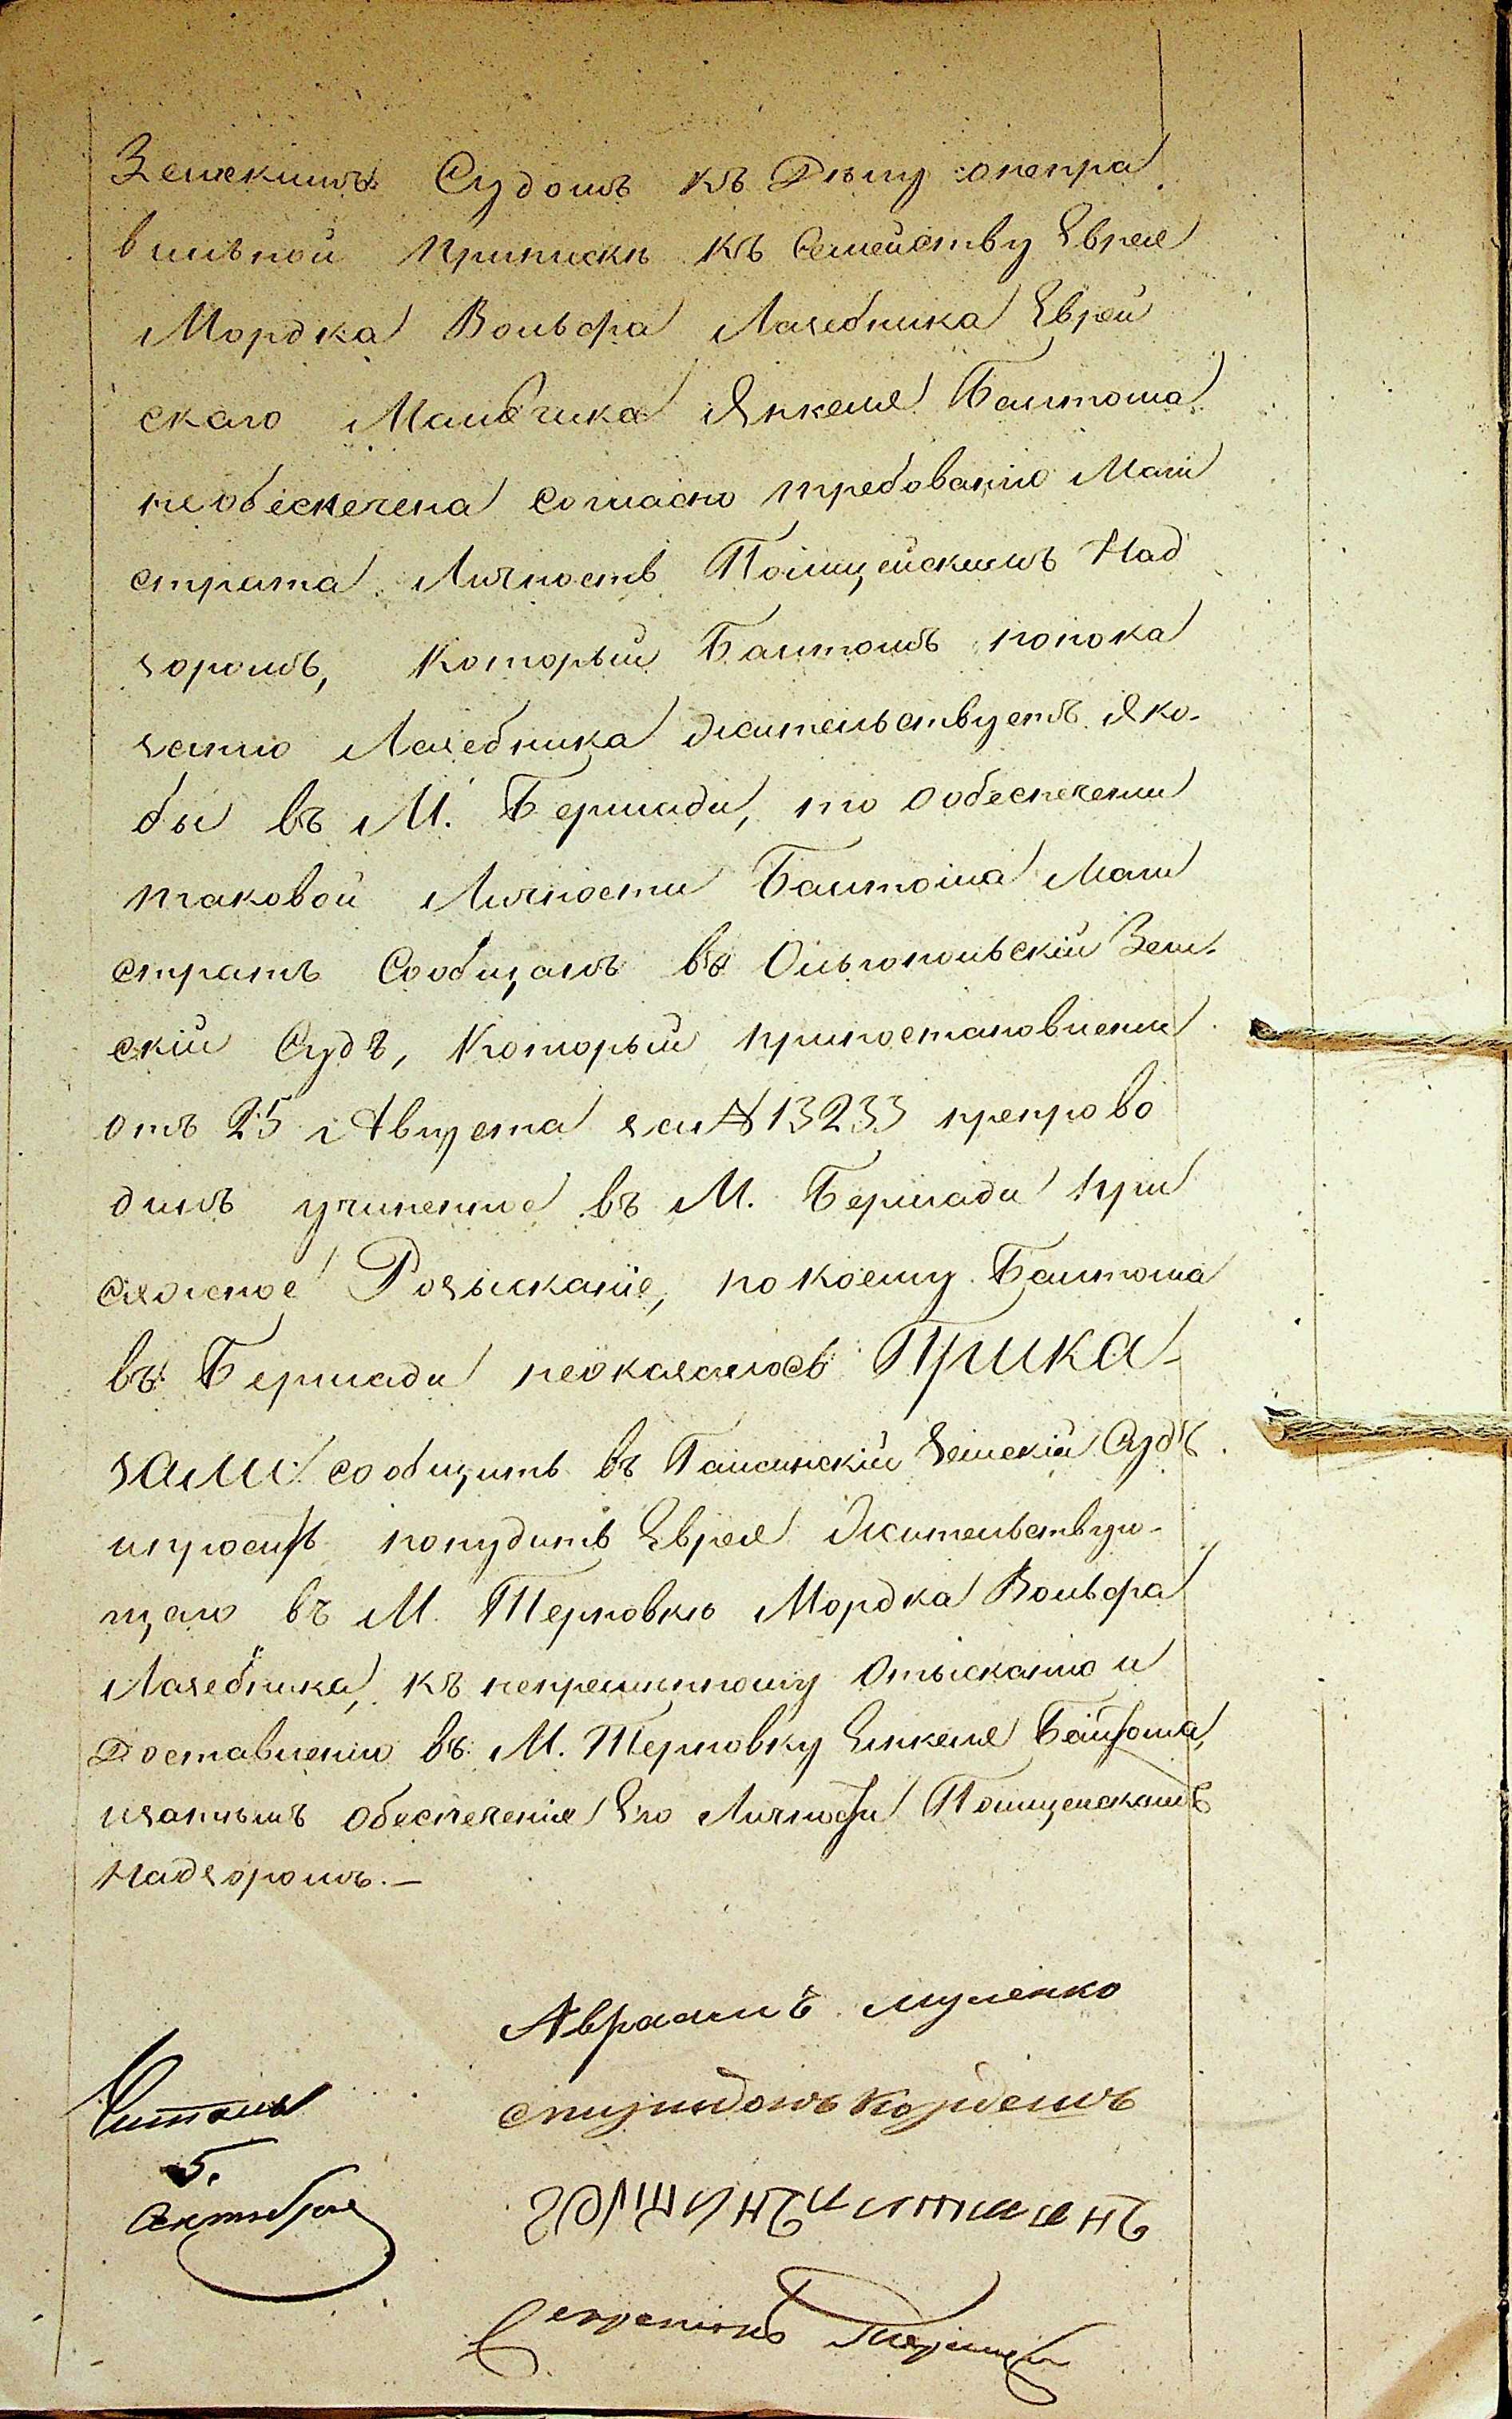 Земскимъ Судомъ къ Дѣлу онепра
вильной припискѣ къ Семейству Еврея
Мордка Вольфа Лазебника Еврей
скаго Мальчика Янкеля Балтоша
необеспечена согласно требованію Маги
страта Личность Полицейскимъ Над
зоромъ, Который Балтошъ попока
занію Лазебника жительствуетъ Яко-
бы въ М. Бершади, то ообеспеченіи
таковой Личности Балтоша Маги
стратъ Сообщалъ въ Ольгопольскій Зем-
скій Судъ, Который припостановленіи
отъ 25 Августа за № 13233 препрово
дилъ учиненное въ М. Бершади при
сяжное Розысканіе, по коему Балтоша
въ Бершади неоказалось Прика-
зали: сообщить въ Гайсинскій Земскій Судъ
ипросить понудить Еврея Жительствую-
щаго въ М. Терновкѣ Мордка Вольфа
Лазебника, къ непремѣнному Отысканію и
Доставленію въ М. Терновку Янкеля Балтоша,
изатѣмъ обеспеченія Его Личности Полицейскимъ
Надзоромъ. —
Авраамъ
Читалъ
5.
Октября
Секретарь